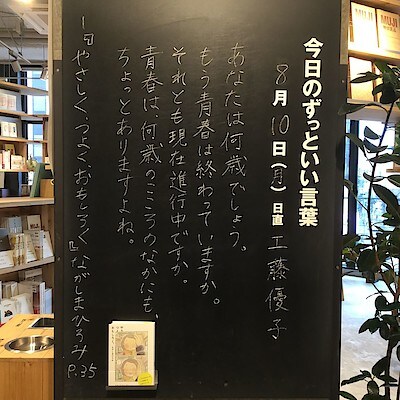 今日のずっといい言葉
8月10日(月) 日直 工藤優子
あなたは何歳でしょう。
もう青春は終わっていますか。
それとも現在進行中ですか。
青春は、何歳のこころのなかにも、
ちょっとありますよね。
―『やさしく、つよく、おもしろく。』ながしまひろみ P.35
MUJI
MUJI